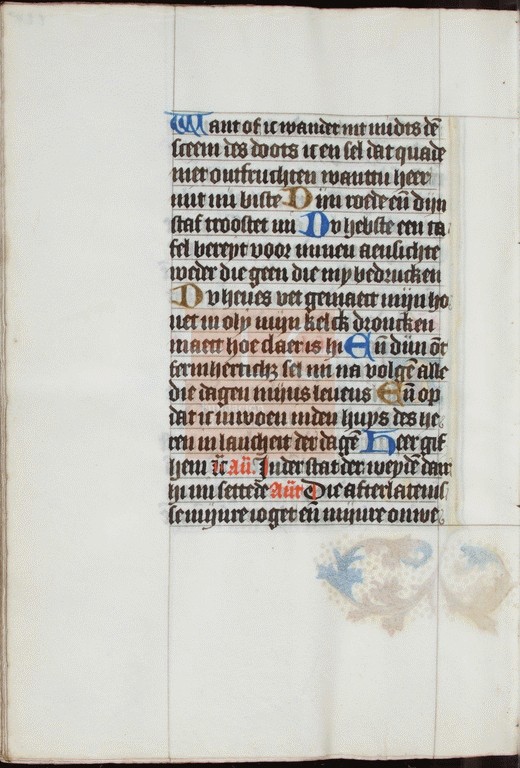 Want of ic wander int midts dē
sceem des doots ic en sel dat quade
niet outfruchten wanttu heer
mit mi biste Dijn roede eñ dijn
staf troostet mi Du hebste een ta
fel bereyt voor minen aensichte
weder die geen die my bedrucken
Du heues vet gemaect mijn ho
uet in oly mijn kelck droncken
maect hoe claer is hi Eñ dijn ōt
fermherticħʒ sel mi na volgen alle
die dagen mijns leuens Eñ op
dat ic inwoen inden huys des he
ren in lancheit der dagē Heer gif
hem Aū. Inder stat der weydē daer
hi mi settede Aūt Die afterlatenis
se mijnre ioget eñ mijnre onwe